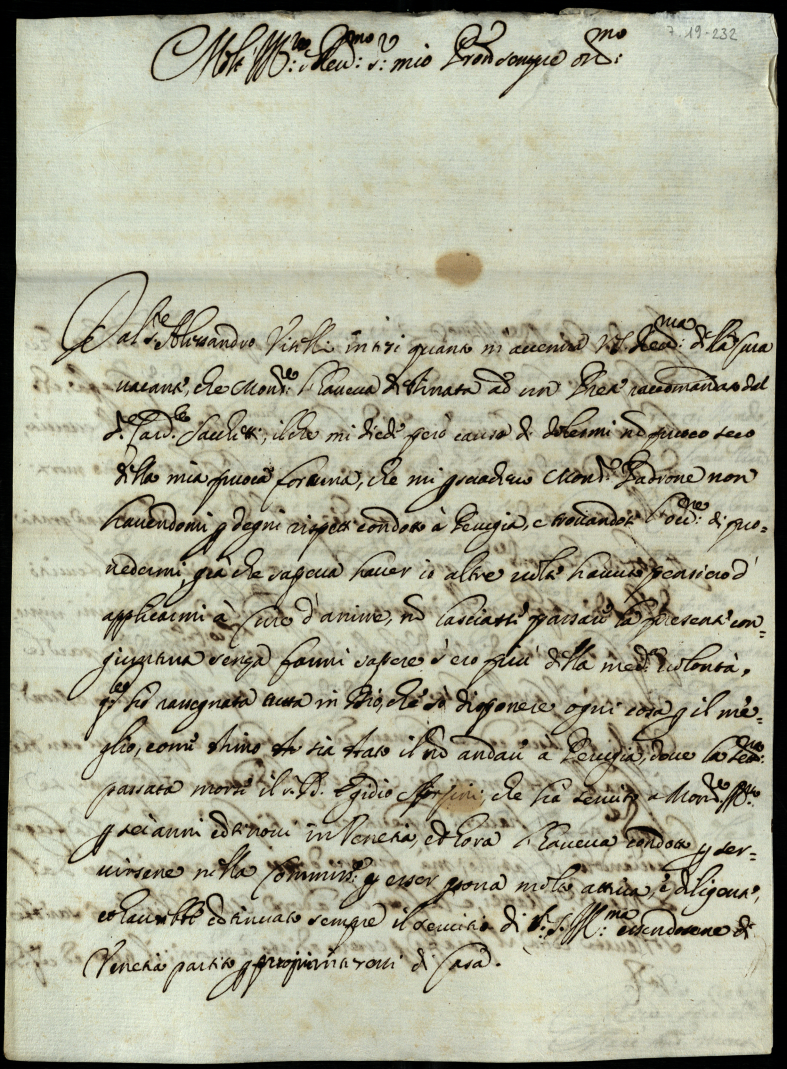 7. 19-232
Molt' Ill.re e Rev.mo S.r mio Pron sempre oss.mo
Dal S.r Alessandro Vitelli intesi quanto m'accenna V.S. Rev.ma della Cura
vacante, che Mons.re haveva destinata ad un Prete raccomandato dal
S.r Card.le Sacchetti, il che mi diede però causa di dolermi no puoco seco
della mia puoca fortuna, che mi persuadevo Mons.re Padrone non
havendomi p degni rispetti condotto à Perugia, e trovandosi l'occ.ne di pro=
vedermi, già che sapeva haver io altre volte havuto pensiero d'
applicarmi à Cure d'anime, no lasciasse passare la presente con=
giuntura senza farmi sapere s'ero più della med.a volontà,
ho rassegnata tutta in Dio, che sà disporre ogni cosa p il me=
glio, come stimo sia stato il no andare à Perugia, dove la
passata morse il Egidio che hà servito a Mons.re Ill.mo
p sei anni continovi in Venetia, et hora l'haveva condotto p ser=
virsene nella p esser persona molto attiva, e diligente,
et havrebbe continuato sempre il servitio di S.S. Ill.ma essendosene di
Venetia partito p di Casa.